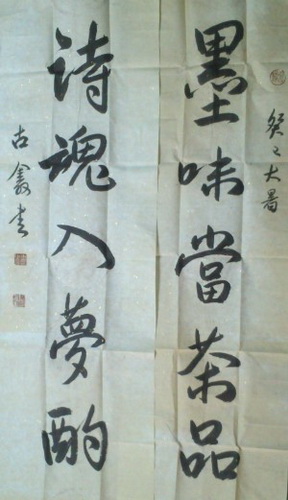 癸巳大暑
墨味當茶品
詩魂入夢酌
古鑫書